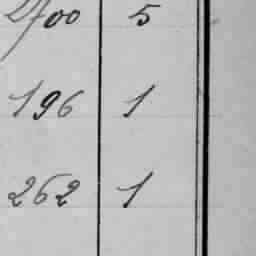 2700 5
196 1
262 1